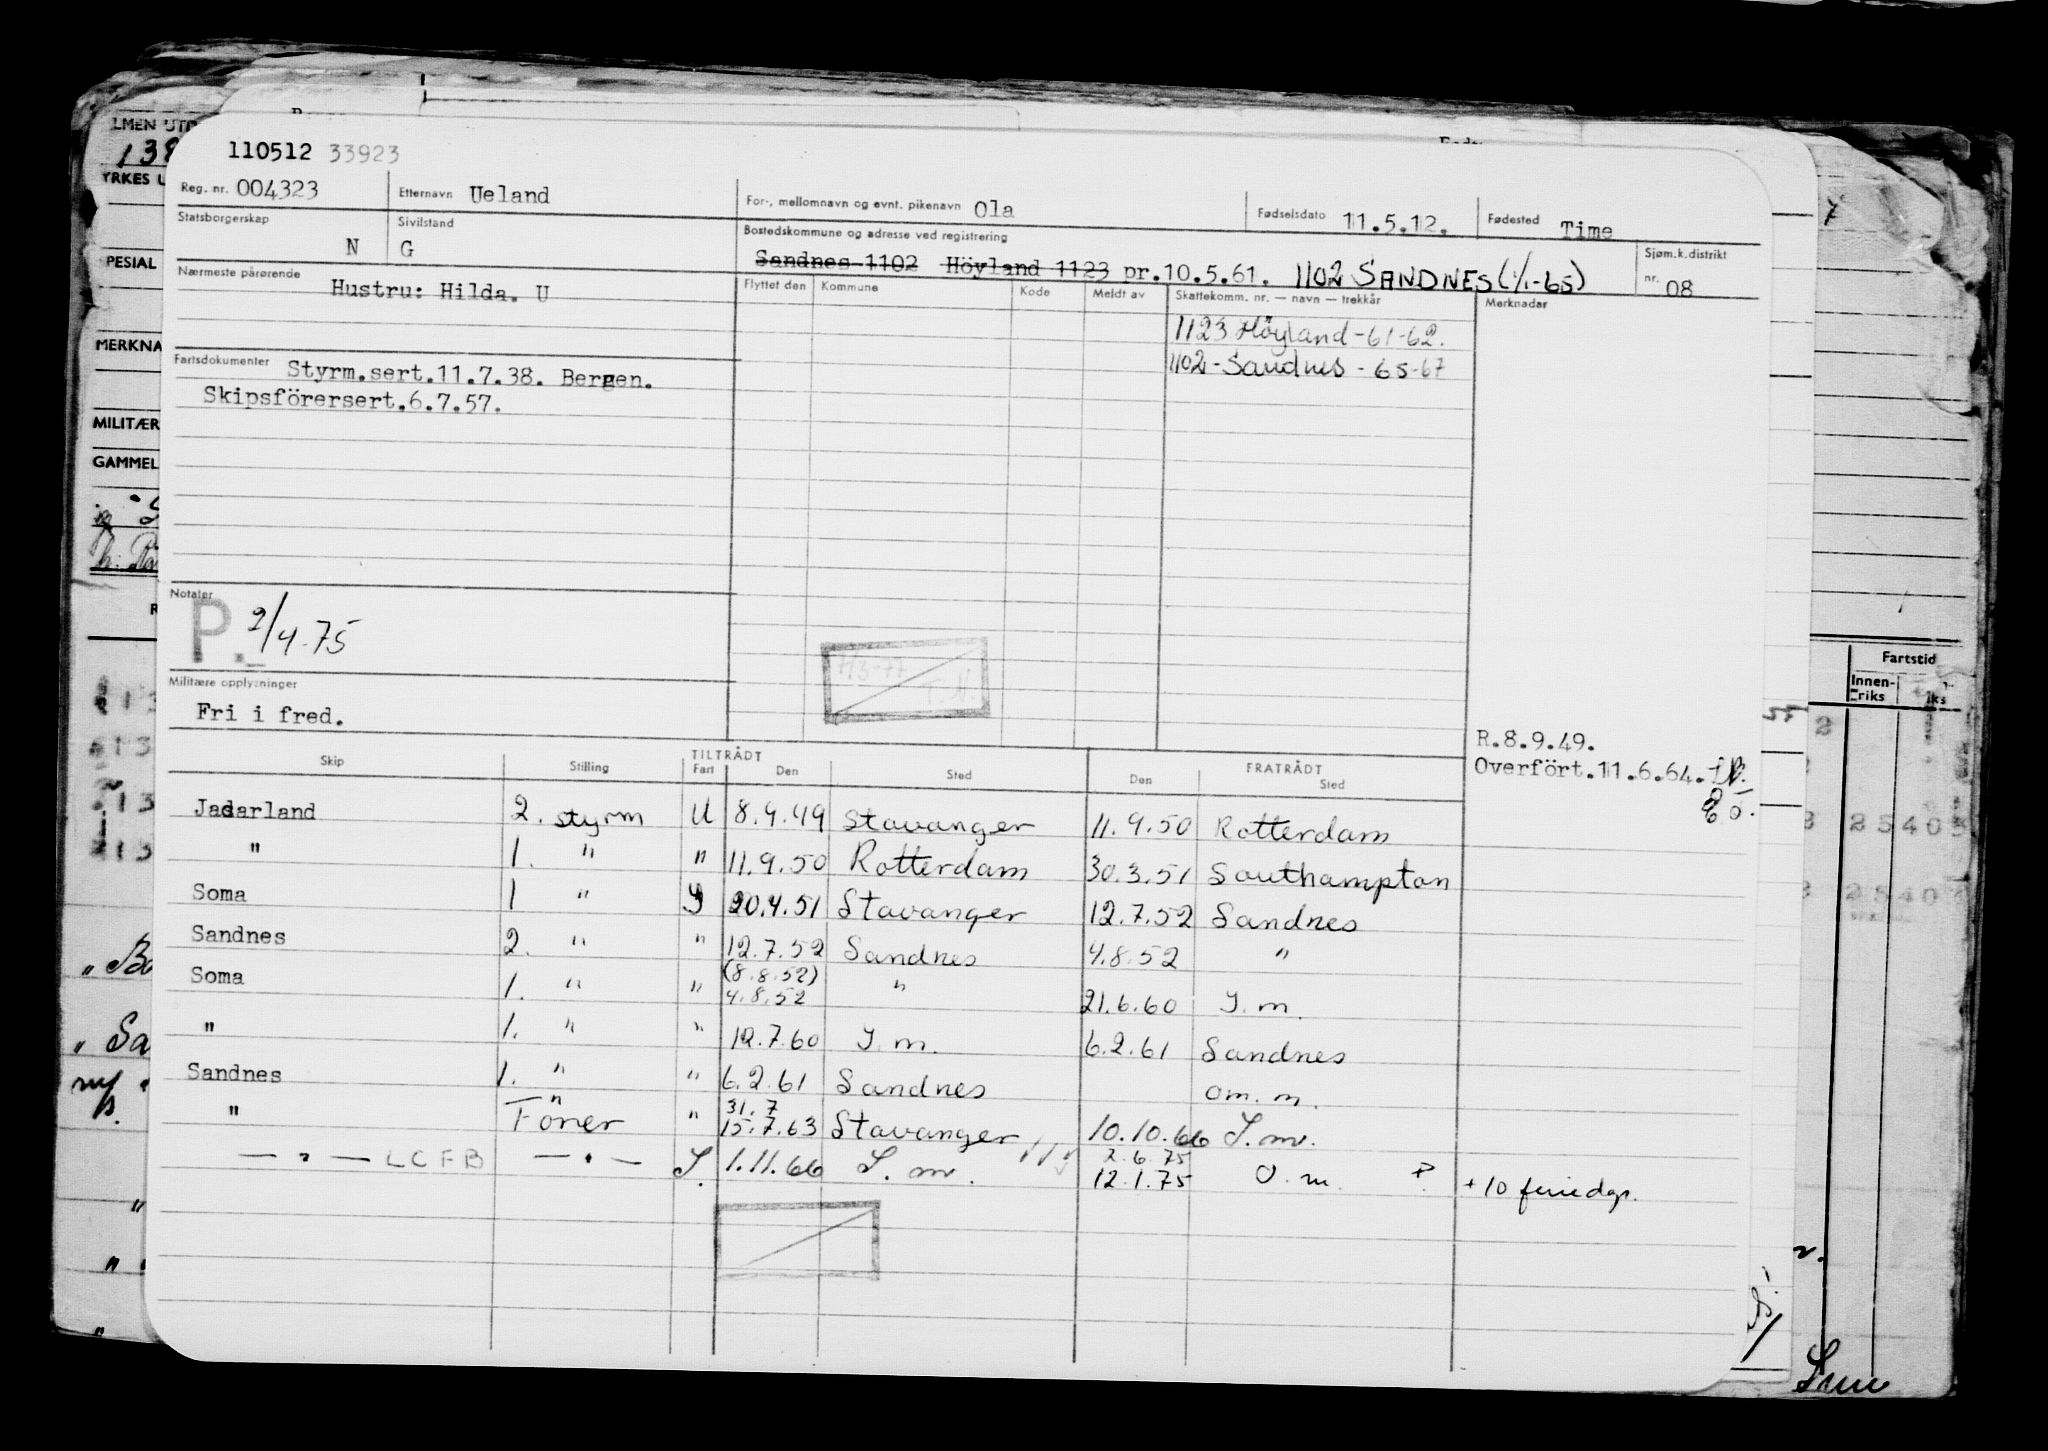 LMEN UTD
YRKES U
PESIAL
MERKNA
MILITÆR
GAMMEL
110512 33923
Reg. nr. 004323 Etternavn Ueland For-, mellomnavn og evnt. pikenavn Ola Fødselsdato 11.5.12. Fødested Time
Statsborgerskap N Sivilstand G Bostedskommune og adresse ved registrering Sandnes 1102 Höyland 1123 pr.10.5.61. 1102 SANDNES (1/1-65) Sjøm.k.distrikt nr. 08
Nærmeste pårørende Hustru: Hilda. U
Flyttet den Kommune Kode Meldt av Skattekomm. nr. — navn — trekkår Merknader
1123 Höyland -61-62.
1102 - Sandnes - 65-67
Fartsdokumenter Styrm.sert.11.7.38. Bergen.
Skipsförersert.6.7.57.
Notater
P. 2/4-75
T.N.
Militære opplysninger
Fri i fred.
R.8.9.49.
Overfört.11.6.64.
Skip Stilling TILTRÅDT Fart Den Sted FRATRÅDT Den Sted
Jadarland 2. styrm U 8.9.49 Stavanger 11.9.50 Rotterdam
" 1. " " 11.9.50 Rotterdam 30.3.51 Southampton
Soma 1 " 20.4.51 Stavanger 12.7.52 Sandnes
Sandnes 2. " " 12.7.52 Sandnes 4.8.52 "
Soma 1. " " (8.8.52) 4.8.52 " 21.6.60 S.m.
" 1. " " 12.7.60 S.m. 6.2.61 Sandnes
Sandnes 1. " " 6.2.61 Sandnes om. m.
" Förer " 31.7 15.7.63 Stavanger 10.10.66 S.m.
— " — LCFB — " — S. 1.11.66 S.m. 2.6.75 12.1.75 O.m. P + 10 feriedgr.
Fartstid
Innen-riks
25403